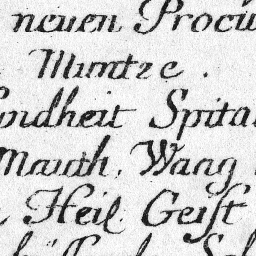 neuen Procu
Muntze .
undheit Spita
Mauth, Wang
Heil. Geist